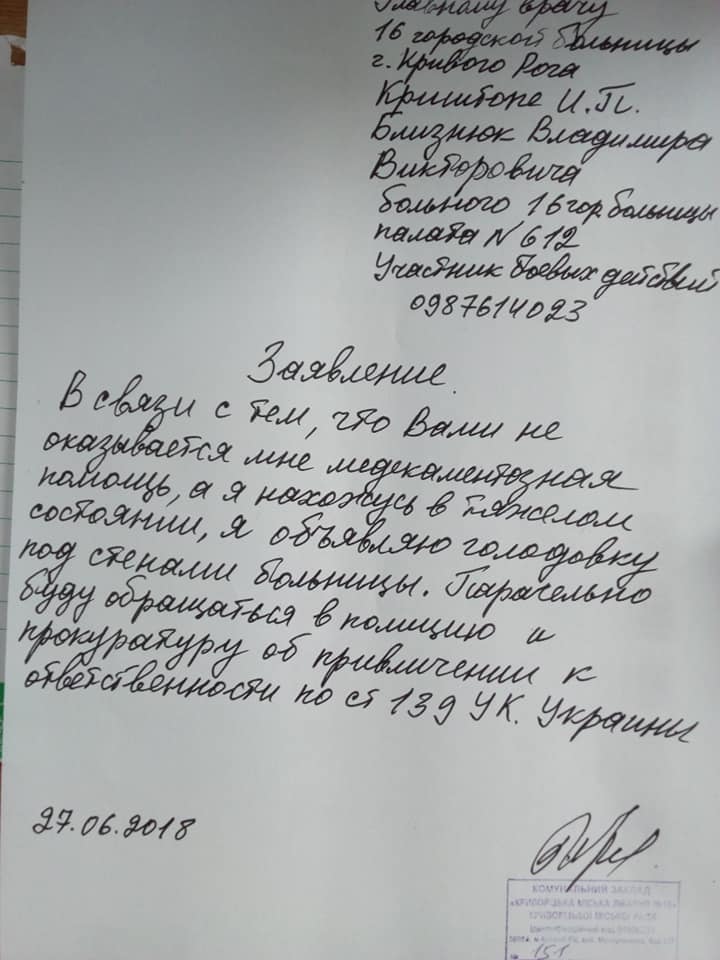 Главному врачу
16 городской больницы
г. Кривого Рога
Криштопе И.П.
Близнюк Владимира
Викторовича
больного 16 гор. больницы
палата N 612
Участник боевых действий
0987614023
Заявление.
В связи с тем, что Вами не
оказывается мне медекаментозная
помощь, а я нахожусь в тяжелом
состоянии, я объявляю голодовку
под стенами больницы. Парачельно
буду обращаться в полицию и
прокуратуру об привличении к
ответственности по ст 139 УК. Украины
27.06.2018
КОМУНАЛЬНИЙ ЗАКЛАД
«КРИВОРІЗЬКА МІСЬКА ЛІКАРНЯ №16»
КРИВОРІЗЬКОЇ МІСЬКОЇ РАДИ
Ідентифікаційний код
№ 151